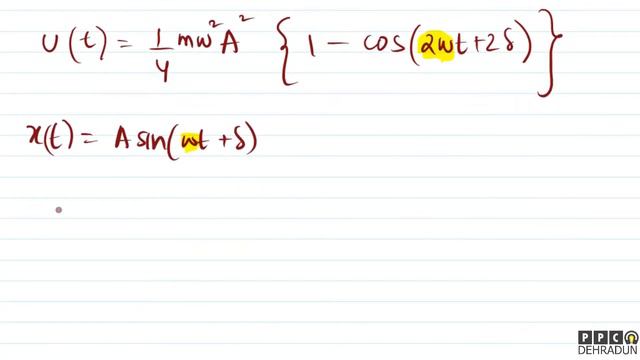 U(t) = 1/4 mω²A² {1 − cos(2ωt+2δ)}
x(t) = A sin(ωt + δ)
PPC
DEHRADUN